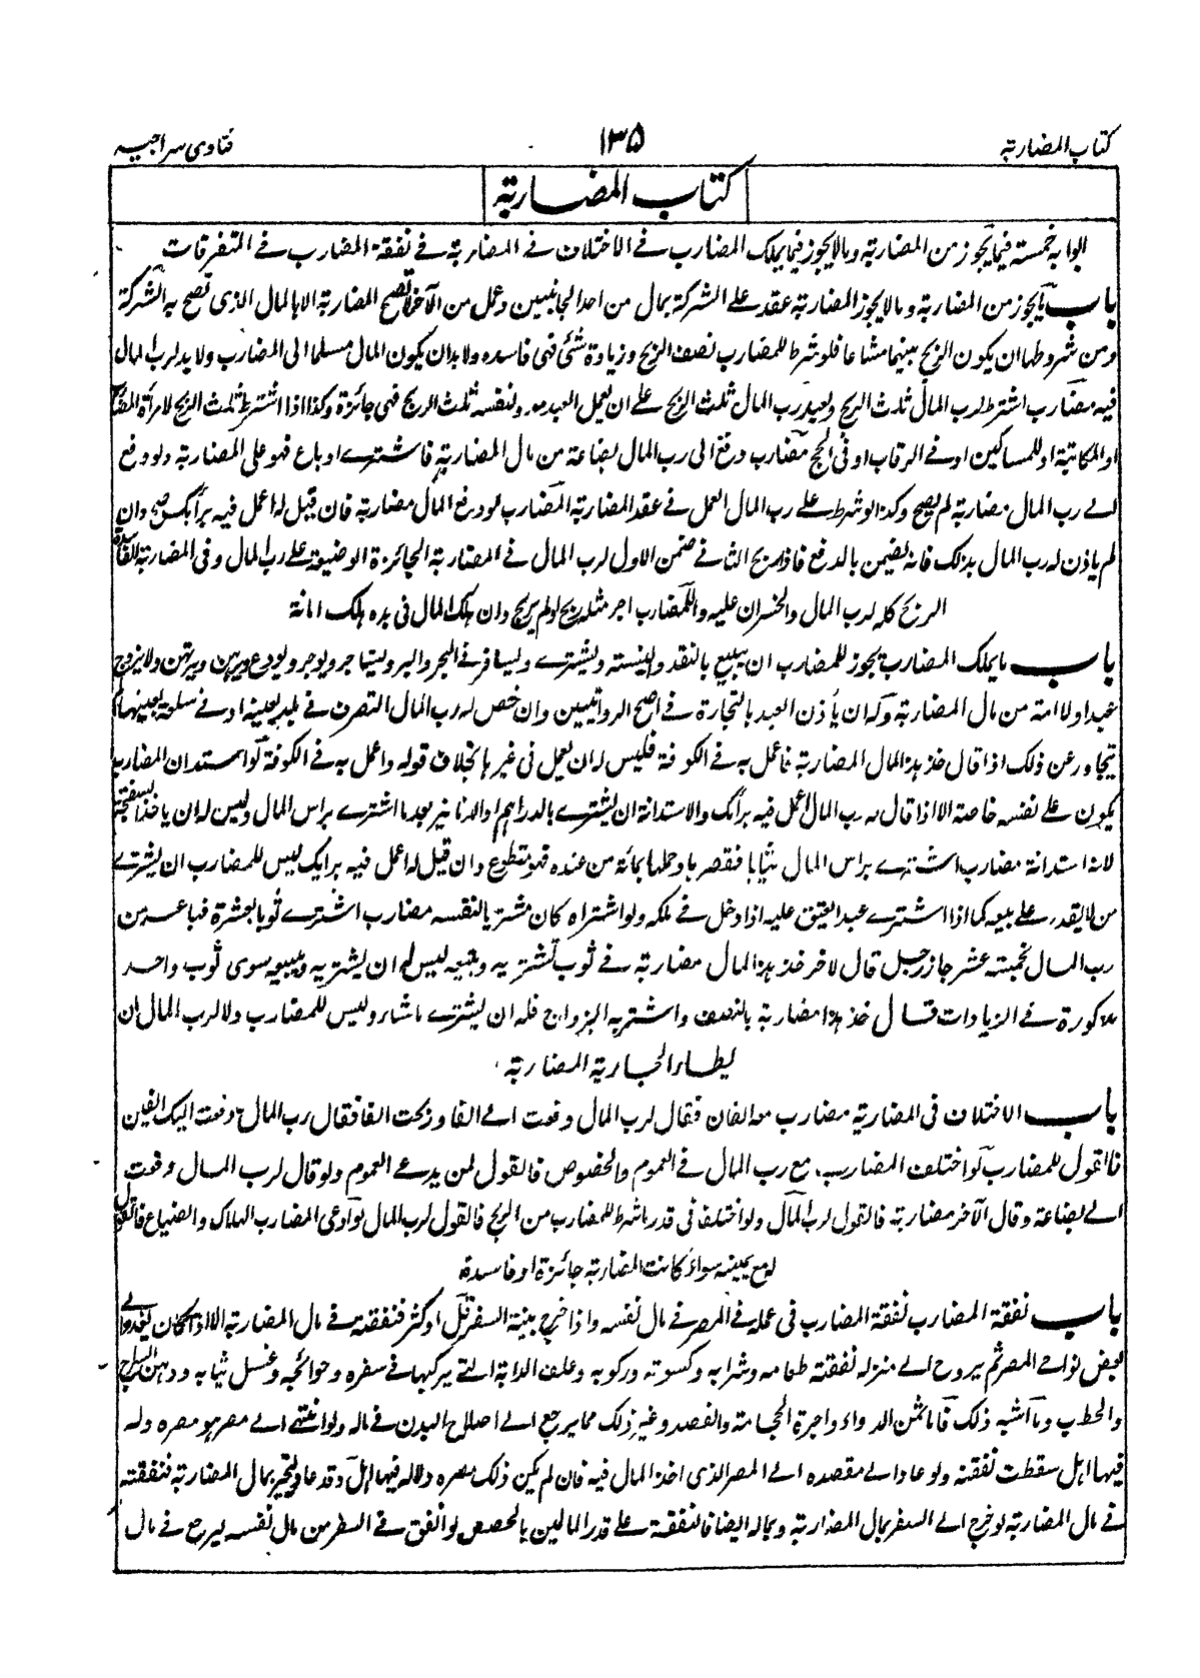 كتاب المضاربة
۱۳۵
فتاوى سراجيه
كتاب المضاربة
ابوابه خمسة فيما يجوز من المضاربة وما لا يجوز فيما يملك المضارب في الاختلاف في المضاربة في نفقة المضارب في المتفرقات
باب ما يجوز من المضاربة وما لا يجوز المضاربة عقد على الشركة بمال من احد الجانبين وعمل من الآخر لا تصح المضاربة الا بالمال الذى تصح به الشركة
ومن شروطها ان يكون الربح بينهما مشاعا فلو شرط للمضارب نصف الربح وزيادة شئ فهى فاسده ولا بد ان يكون المال مسلما الى المضارب ولا يد لرب المال
فيه مضارب اشترط لرب المال ثلث الربح ولعبد رب المال ثلث الربح على ان يعمل العبد معه ولنفسه ثلث الربح فهى جائزة وكذا اذا اشترط ثلث الربح لامرأة المضارب
او المكاتبة او للمساكين او في الرقاب او في الحج مضارب دفع الى رب المال بضاعة من مال المضاربة فاشترى او باع فهو على المضاربة ولو دفع
الى رب المال مضاربة لم يصح وكذا لو شرط على رب المال العمل في عقد المضاربة المضارب لو دفع المال مضاربة فان قيل له اعمل فيه برأيك صح وان
لم ياذن له رب المال بذلك فانه يضمن بالدفع فاذا ربح الثانى ضمن الاول لرب المال في المضاربة الجائزة الوضيعة على رب المال وفى المضاربة الفاسدة
الربح كله لرب المال والخسران عليه وللمضارب اجر مثله ربح او لم يربح وان هلك المال فى يده هلك امانة
باب ما يملك المضارب يجوز للمضارب ان يبيع بالنقد والنسيئة ويشترى ويسافر في البحر والبر ويستاجر ويوجر ويودع ويرهن ويرتهن ولا يزوج
عبدا ولا امة من مال المضاربة وله ان يأذن العبد بالتجارة في اصح الروايتين وان خص له رب المال التصرف في بلد بعينه او في سلعة بعينها لا
يتجاوز عن ذلك اذا قال خذ هذا المال المضاربة فاعمل به في الكوفة فليس له ان يعمل فى غيرها بخلاف قوله واعمل به في الكوفة لو استدان المضارب
يكون على نفسه خاصة الا اذا قال له رب المال اعمل فيه برأيك والاستدانة ان يشترى بالدراهم والدنانير بعد ما اشترى براس المال وليس له ان ياخذ سفتجة
لانه استدانة مضارب اشترى براس المال ثيابا فقصرها وحملها بمائة من عنده فهو متطوع وان قيل له اعمل فيه برايك ليس للمضارب ان يشترى
من لا يقدر على بيعه كما اذا اشترى عبدا يعتق عليه اذا دخل في ملكه ولو اشتراه كان مشتريا لنفسه مضارب اشترى ثوبا بعشرة فباعه من
رب المال بخمسة عشر جاز رجل قال لآخر خذ هذا المال مضاربة في ثوب تشتريه وتبيعه ليس له ان يشتريه ويبيعه سوى ثوب واحد
مذكورة في الزيادات قال خذ هذا مضاربة بالنصف واشتر به البز واتجر فله ان يشترى ما شاء وليس للمضارب ولا لرب المال ان
يطاء الجارية المضاربة
باب الاختلاف فى المضاربة مضارب معه الفان فقال لرب المال دفعت الى الفا وربحت الفا فقال رب المال دفعت اليك الفين
فالقول للمضارب لو اختلف المضارب مع رب المال في العموم والخصوص فالقول لمن يدعى العموم ولو قال لرب المال دفعت
الى بضاعة وقال الآخر مضاربة فالقول لرب المال ولو اختلفا فى قدر ما شرط للمضارب من الربح فالقول لرب المال لو ادعى المضارب الهلاك والضياع فالقول
له مع يمينه سواء كانت المضاربة جائزة او فاسدة
باب نفقة المضارب نفقة المضارب فى عمله في المصر في مال نفسه واذا خرج بنية السفر قل او كثر فنفقته في مال المضاربة الا اذا كان يغدو الى
بعض نواحى المصر ثم يروح الى منزله نفقته طعامه وشرابه وكسوته وركوبه وعلف الدابة التى يركبها في سفره وحوائجه وغسل ثيابه ودهن السراج
والحطب وما اشبه ذلك فاما ثمن الدواء واجرة الحجامة والفصد وغير ذلك مما يرجع الى اصلاح البدن في ماله ولو انتهى الى مصر هو مصره وله
فيها اهل سقطت نفقته ولو عاد الى مقصده الى المصر الذى اخذ المال فيه فان لم يكن ذلك مصره ولا له فيها اهل وقد عاد ليتجر بمال المضاربة فنفقته
في مال المضاربة لو خرج الى السفر بمال المضاربة وبماله ايضا فالنفقة على قدر المالين بالحصص لو انفق في السفر من مال نفسه ليرجع في مال